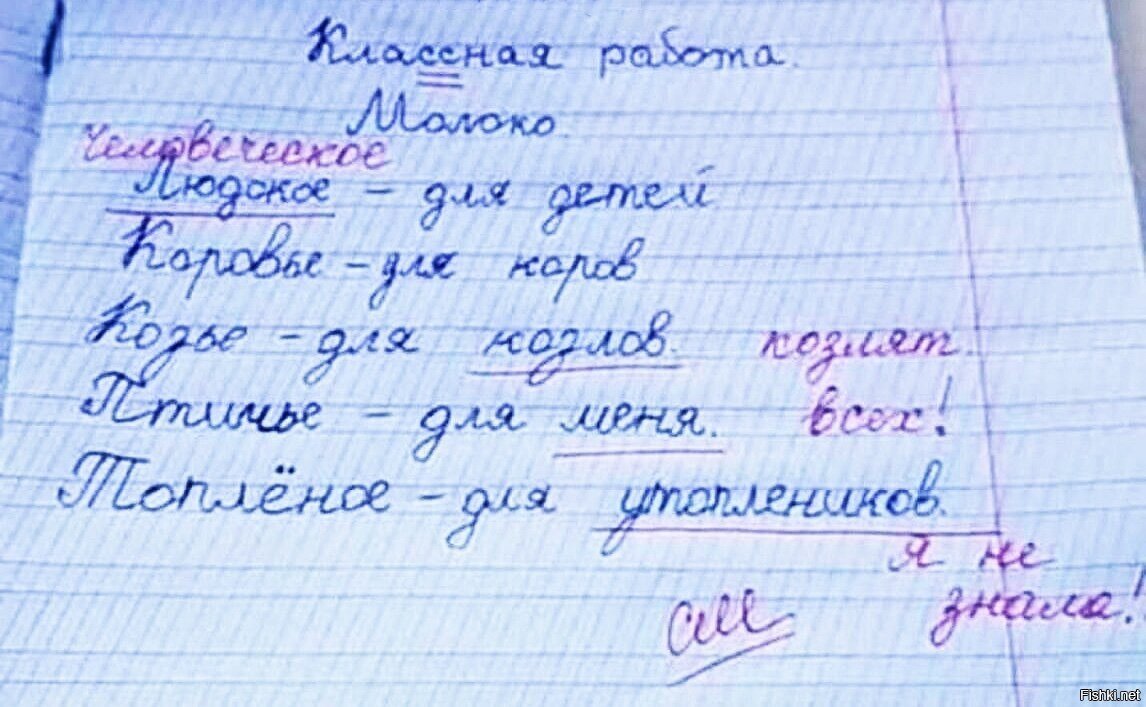 Классная работа.
Молоко.
Человеческое
Людское - для детей
Коровье - для коров
Козье - для козлов. козлят.
Птичье - для меня. всех!
Топлёное - для утоплеников.
я не
знала!
См
Fishki.net